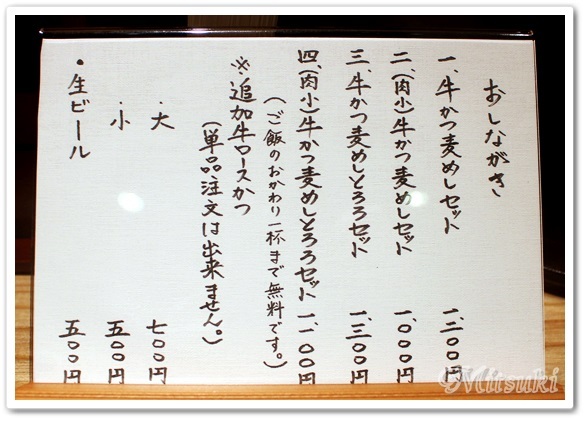 おしながき
一、牛かつ麦めしセット 一、二〇〇円
二、(肉小)牛かつ麦めしセット 一、〇〇〇円
三、牛かつ麦めしとろろセット 一、三〇〇円
四、(肉小)牛かつ麦めしとろろセット 一、一〇〇円
(ご飯のおかわり一杯まで無料です。)
※追加牛ロースかつ
(単品注文は出来ません。)
・大 七〇〇円
・小 五〇〇円
・生ビール 五〇〇円
©Mitsuki